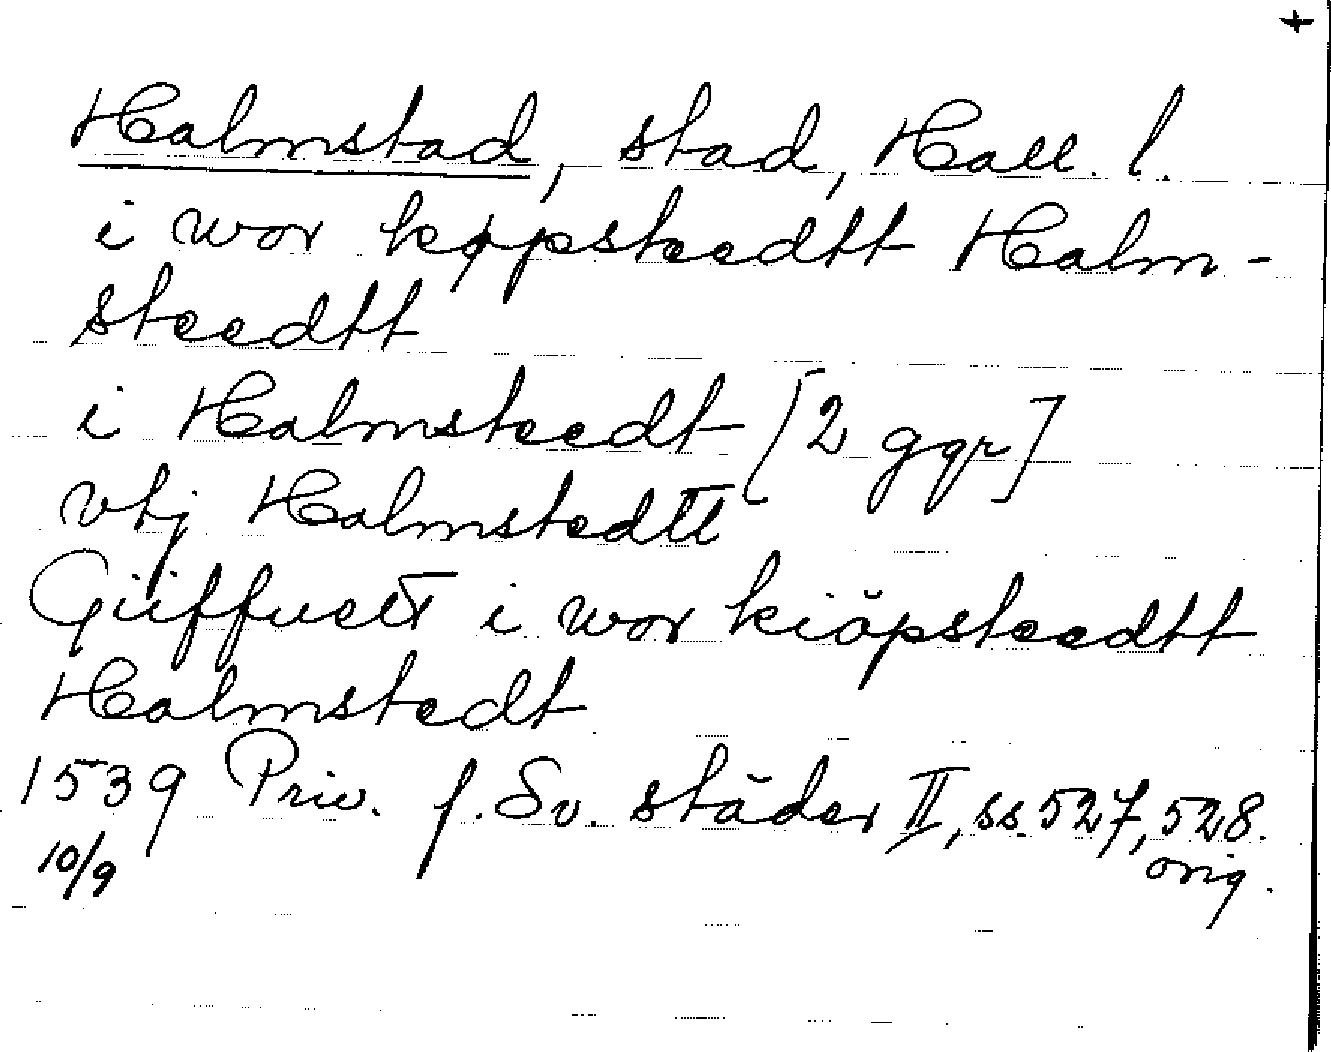 +
Halmstad, stad, Hall. l.
i wor køpsteedtt Halm-
steedtt
i Halmsteedt [2 ggr]
vtj Halmstedtt
Giiffuett i wor kiöpsteedtt
Halmstedt
1539 Priv. f. Sv. städer II, ss. 527, 528.
10/9 orig.